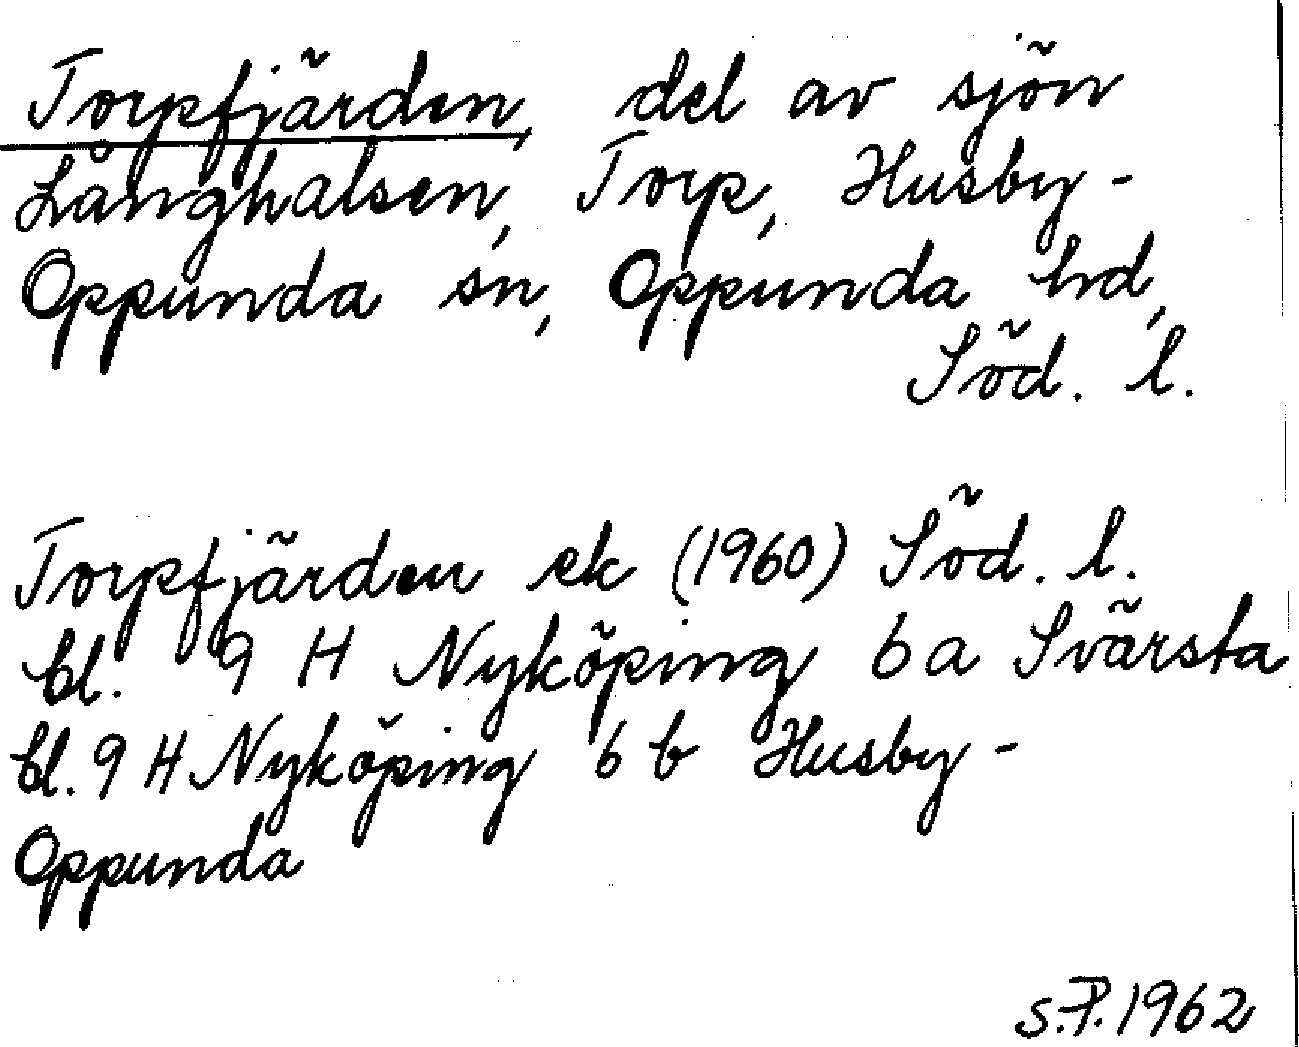 Torpfjärden, del av sjön
Långhalsen, Torp, Husby-
Oppunda sn, Oppunda hd,
Söd. l.
Torpfjärden ek (1960) Söd. l.
bl. 9 H Nyköping 6 a Svärsta
bl. 9 H Nyköping 6 b Husby-
Oppunda
S.P. 1962